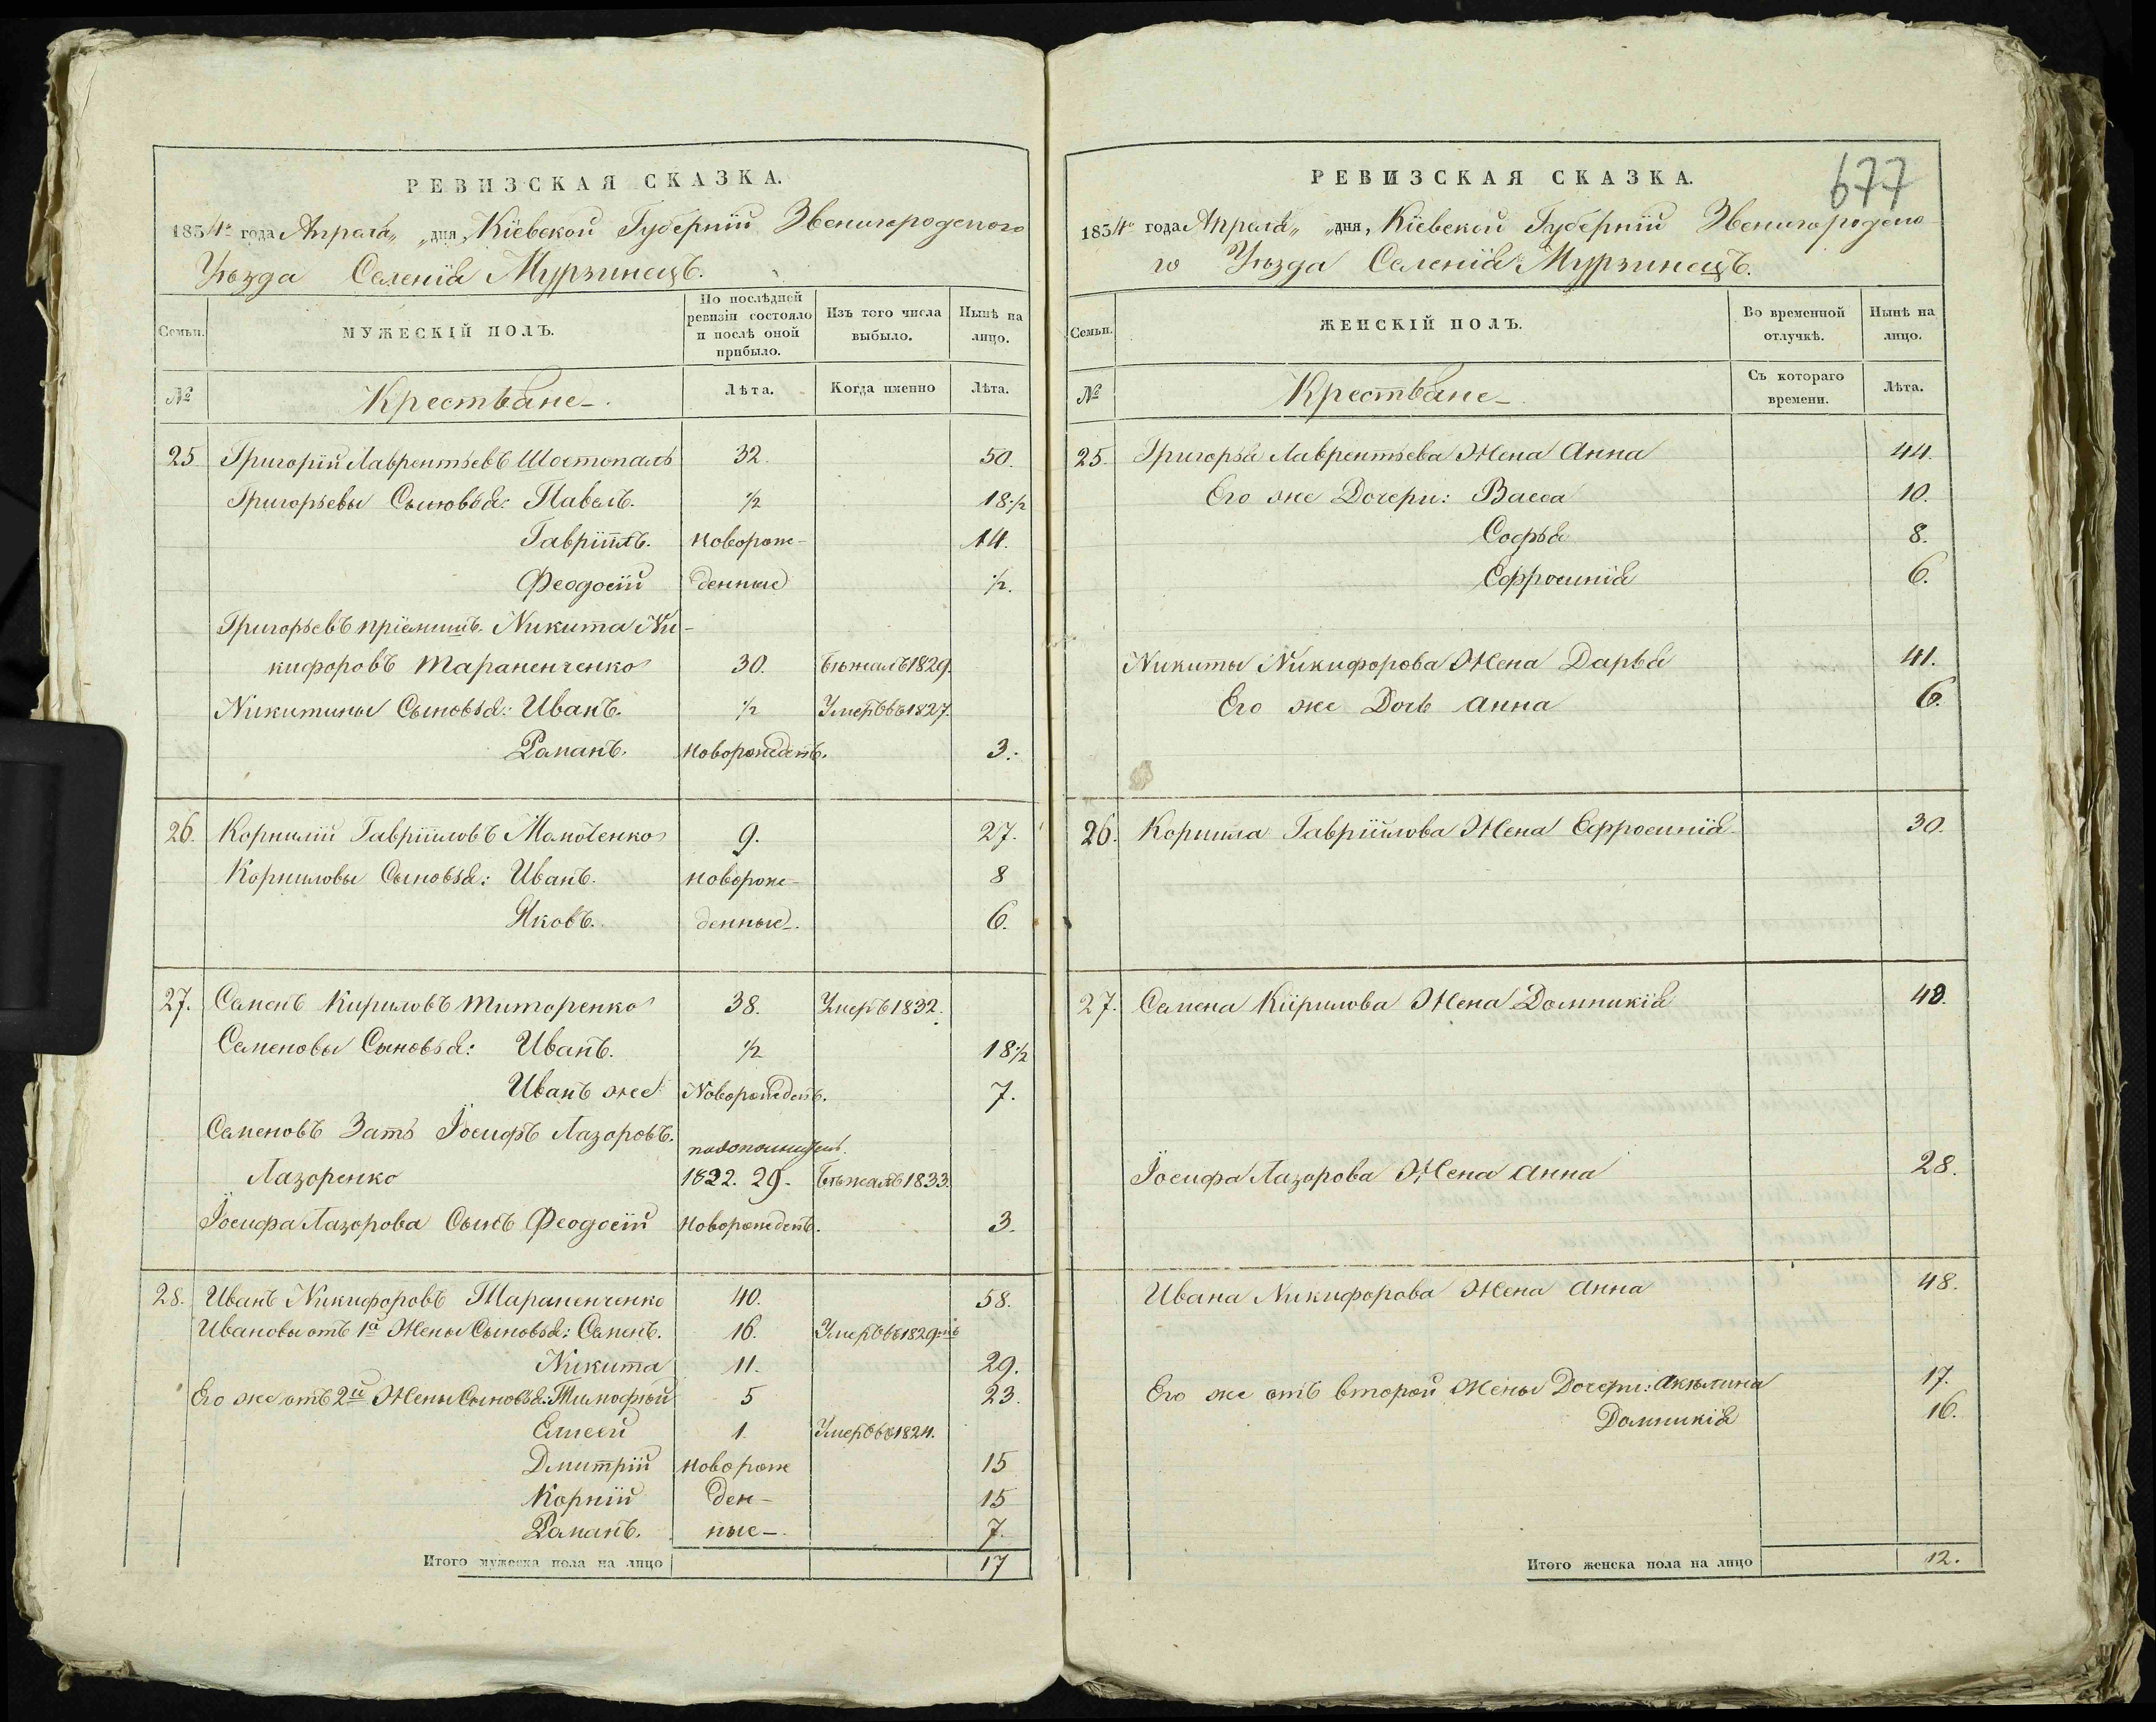 РЕВИЗСКАЯ СКАЗКА.
1834го года Апреля „ „ дня, Кіевской Губерніи Звенигородского
Уѣзда Селенія Мурзинецъ.
Семьи.
МУЖЕСКІЙ ПОЛЪ.
По послѣдней ревизіи состояло и послѣ оной прибыло.
Изъ того числа выбыло.
Нынѣ на лицо.
№
Крестьяне
Лѣта.
Когда именно
Лѣта.
25 Григорій Лаврентьевъ Шостопалъ 32. 50.
Григорьевы Сыновья: Павелъ. ½ 18½
Гавріилъ. новорож- 14.
Феодосій денные ½.
Григорьевъ пріемышъ Никита Ни-
кифоровъ Тараненченко 30. бѣжалъ 1829.
Никитины Сыновья: Иванъ. ½ Умеръ въ 1827.
Романъ. новорожденъ. 3.
26. Корнилій Гавріиловъ 9. 27.
Корниловы Сыновья: Иванъ. новорож- 8
Яковъ. денные. 6.
27. Семенъ Кириловъ Титоренко 38. Умеръ 1832.
Семеновы Сыновья: Иванъ. ½ 18½
Иванъ же Новорожденъ. 7.
Семеновъ Зять Іосифъ Лазоровъ.
Лазоренко 1822. 29. бѣжалъ 1833.
Іосифа Лазорова Сынъ Феодосій новорожденъ. 3.
28. Иванъ Никифоровъ Тараненченко 40. 58.
Ивановы отъ 1й Жены Сыновья: Семенъ. 16. Умеръ въ 1829мъ
Никита 11. 29.
Его же отъ 2й Жены Сыновья: Тимофѣй 5 23.
Елисей 1. Умеръ въ 1824.
Дмитрій новорож 15
Корній ден- 15
Романъ. ные 7.
Итого мужеска пола на лицо 17
677
РЕВИЗСКАЯ СКАЗКА.
1834го года Апреля „ „ дня, Кіевской Губерніи Звенигородско
го Уѣзда Селенія Мурзинецъ.
Семьи.
ЖЕНСКІЙ ПОЛЪ.
Во временной отлучкѣ.
Нынѣ на лицо.
№
Крестьяне
Съ котораго времени.
Лѣта.
25. Григорья Лаврентьева Жена Анна 44.
Его же Дочери: Васса 10.
Софья 8.
Ефросинія 6.
Никиты Никифорова Жена Дарья 41.
Его же Дочь Анна 6.
26. Корнила Гавріилова Жена Ефросинія 30.
27. Семена Кирилова Жена Домникія 48.
Іосифа Лазорова Жена Анна 28.
Ивана Никифорова Жена Анна 48.
Его же отъ второй Жены Дочери: Акилина 17.
Домникія 16.
Итого женска пола на лицо 12.